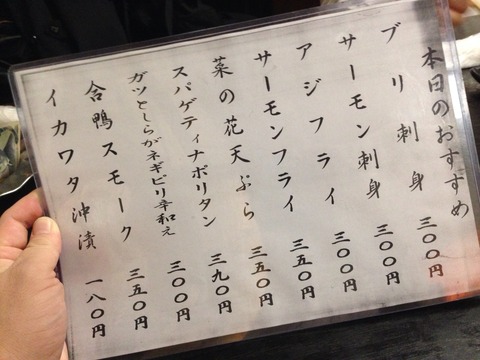 本日のおすすめ
ブリ刺身 三〇〇円
サーモン刺身 三〇〇円
アジフライ 三五〇円
サーモンフライ 三五〇円
菜の花天ぷら 三九〇円
スパゲティナポリタン 三〇〇円
ガツとしらがネギピリ辛和え 三五〇円
合鴨スモーク 三五〇円
イカワタ沖漬 一八〇円